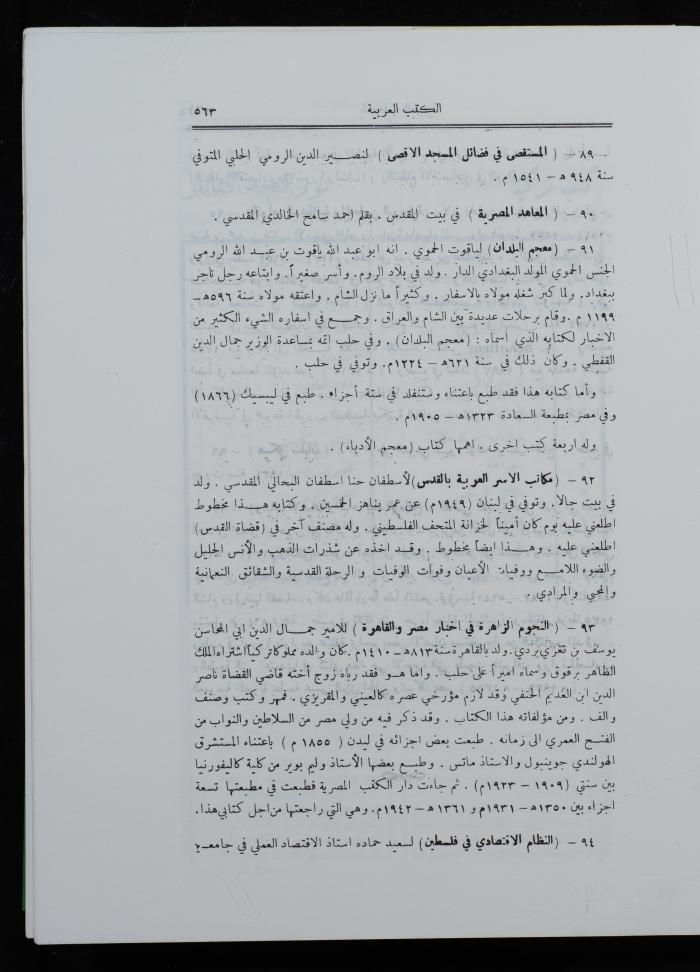 الكتب العربية ٥٦٣
٨٩ – ( المستقصى في فضائل المسجد الاقصى ) لنصير الدين الرومي الحلبي المتوفي
سنة ٩٤٨ ه – ١٥٤١ م .
٩٠ – ( المعاهد المصرية ) في بيت المقدس . بقلم احمد سامح الخالدي المقدسي .
٩١ – (معجم البلدان) لياقوت الحموي . انه ابو عبد الله ياقوت بن عبد الله الرومي
الجنس الحموي المولد البغدادي الدار . ولد في بلاد الروم . وأسر صغيراً . وابتاعه رجل تاجر
ببغداد . ولما كبر شغله مولاه بالاسفار . وكثيراً ما نزل الشام . واعتقه مولاه سنة ٥٩٦ه–
١١٩٩ م .وقام برحلات عديدة بين الشام والعراق . وجمع في اسفاره الشيء الكثير من
الاخبار لكتابه الذي اسماه : (معجم البلدان) . وفي حلب اتمه بمساعدة الوزير جمال الدين
القفطي . وكان ذلك في سنة ٦٢١ه – ١٢٢٤م. وتوفي في حلب .
وأما كتابه هذا فقد طبع باعتناء وستنفلد في ستة أجزاء . طبع في ليبسيك (١٨٦٦)
وفي مصر بمطبعة السعادة ١٣٢٣ه – ١٩٠٥م .
وله اربعة كتب اخرى . اهمها كتاب (معجم الأدباء) .
٩٢ – (مكاتب الاسر العربية بالقدس) لأسطفان حنا اسطفان البجالي المقدسي . ولد
في بيت جالا . وتوفي في لبنان (١٩٤٩م) عن عمر يناهز الخمسين . وكتابه هذا مخطوط
اطلعني عليه يوم كان أميناً لخزانة المتحف الفلسطيني . وله مصنف آخر في (قضاة القدس)
اطلعني عليه . وهذا ايضاً مخطوط . وقد اخذه عن شذرات الذهب والأنس الجليل
والضوء اللامع ووفيات الأعيان وفوات الوفيات و الرحلة القدسية والشقائق النعمانية
والمحبي والمرادي .
٩٣ – (النجوم الزاهرة في اخبار مصر والقاهرة ) للامير جمال الدين ابي المحاسن
يوسف بن تغري بردي .ولد بالقاهرة سنة ٨١٣ه – ١٤١٠م .كان والده مملوكاً تركياً اشتراه الملك
الظاهر برقوق وسماه اميراً على حلب . واما هو فقد رباه زوج أخته قاضي القضاة ناصر
الدين ابن العديم الحنفي وقد لازم مؤرخي عصره كالعيني والمقريزي . فمهر وكتب وصنف
والف . ومن مؤلفاته هذا الكتاب . وقد ذكر فيه من ولي مصر من السلاطين والنواب من
الفتح العمري الى زمانه . طبعت بعض اجزائه في ليدن ( ١٨٥٥ م ) باعتناء المستشرق
الهولندي جوينبول والاستاذ ماتس . وطبع بعضها الأستاذ وليم بوبر من كلية كاليفورنيا
بين سنتي (١٩٠٩ – ١٩٢٣م) . ثم جاءت دار الكتب المصرية فطبعت في مطبعتها تسعة
اجزاء بين ١٣٥٠ه – ١٩٣١م و ١٣٦١ ه – ١٩٤٢م. وهي التي راجعتها من اجل كتابي هذا.
٩٤ – (النظام الاقتصادي في فلسطين) لسعيد حماده استاذ الاقتصاد العملي في جامعة